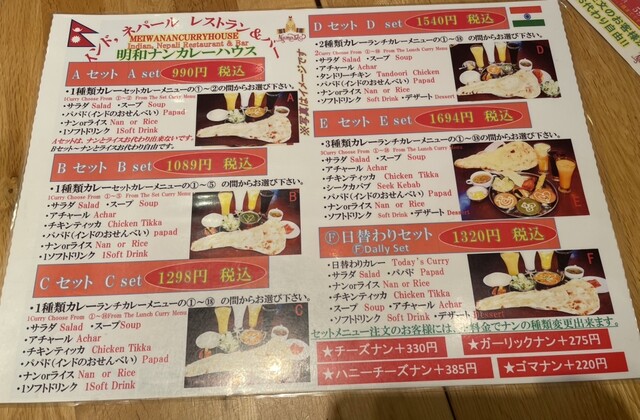 インド・ネパール レストラン&バー
MEIWANANCURRYHOUSE
Indian, Nepali Restaurant & Bar
明和ナンカレーハウス
※写真はイメージです
A セット A set 990円 税込
・1種類カレーセットカレーメニューの①~②の間からお選び下さい。
1Curry Choose From ①-② From The Set Curry Menu
・サラダ Salad ・スープ Soup
・パパド(インドのおせんべい) Papad
・ナンorライス Nan or Rice
・1ソフトドリンク 1Soft Drink
Aセットは、ナンとライスお代わり出来ないです。
Bセット~ナンとライスお代わり自由です。
A
B セット B set 1089円 税込
・1種類カレーセットカレーメニューの①~⑤ の間からお選び下さい。
・サラダ Salad ・スープ Soup
・アチャール Achar
・チキンティッカ Chicken Tikka
・パパド(インドのおせんべい) Papad
・ナンorライス Nan or Rice
・1ソフトドリンク 1Soft Drink
B
C セット C set 1298円 税込
・1種類カレーランチカレーメニューの①~⑱ の間からお選び下さい。
1Curry Choose From ①-⑱From The Lunch Curry Menu
・サラダ Salad ・スープSoup
・アチャール Achar
・チキンティッカ Chicken Tikka
・パパド(インドのおせんべい) Papad
・ナンorライス Nan or Rice
・1ソフトドリンク 1Soft Drink
C
D セット D set 1540円 税込
・2種類カレーランチカレーメニューの①~⑱ の間からお選び下さい。
2Curry Choose From ①-⑱ From The Lunch Curry Menu
・サラダ Salad ・スープ Soup
・アチャール Achar
・タンドリーチキン Tandoori Chicken
・パパド(インドのおせんべい) Papad
・ナンorライス Nan or Rice
・ソフトドリンク Soft Drink ・デザート Dessert
D
E セット E set 1694円 税込
・3種類カレーランチカレーメニューの①~⑱の間からお選び下さい。
3Curry Choose From ①-⑱ From The Lunch Curry Menu
・サラダ Salad ・スープ Soup
・アチャール Achar
・チキンティッカ Chicken Tikka
・シークカバブ Seek Kebab
・パパド(インドのおせんべい) Papad
・ナンorライス Nan or Rice
・ソフトドリンク Soft Drink ・デザート Dessert
E
Ⓕ日替わりセット 1320円 税込
Ⓕ Daily Set
・日替わりカレー Today's Curry
・サラダ Salad ・パパド Papad
・ナンorライス Nan or Rice
・チキンティッカ Chicken Tikka
・スープ Soup ・アチャール Achar
・ソフトドリンク Soft Drink ・デザート Dessert
F
セットメニュー注文のお客様には 料金でナンの種類変更出来ます。
★チーズナン+330円
★ガーリックナン+275円
★ハニーチーズナン+385円
★ゴマナン+220円